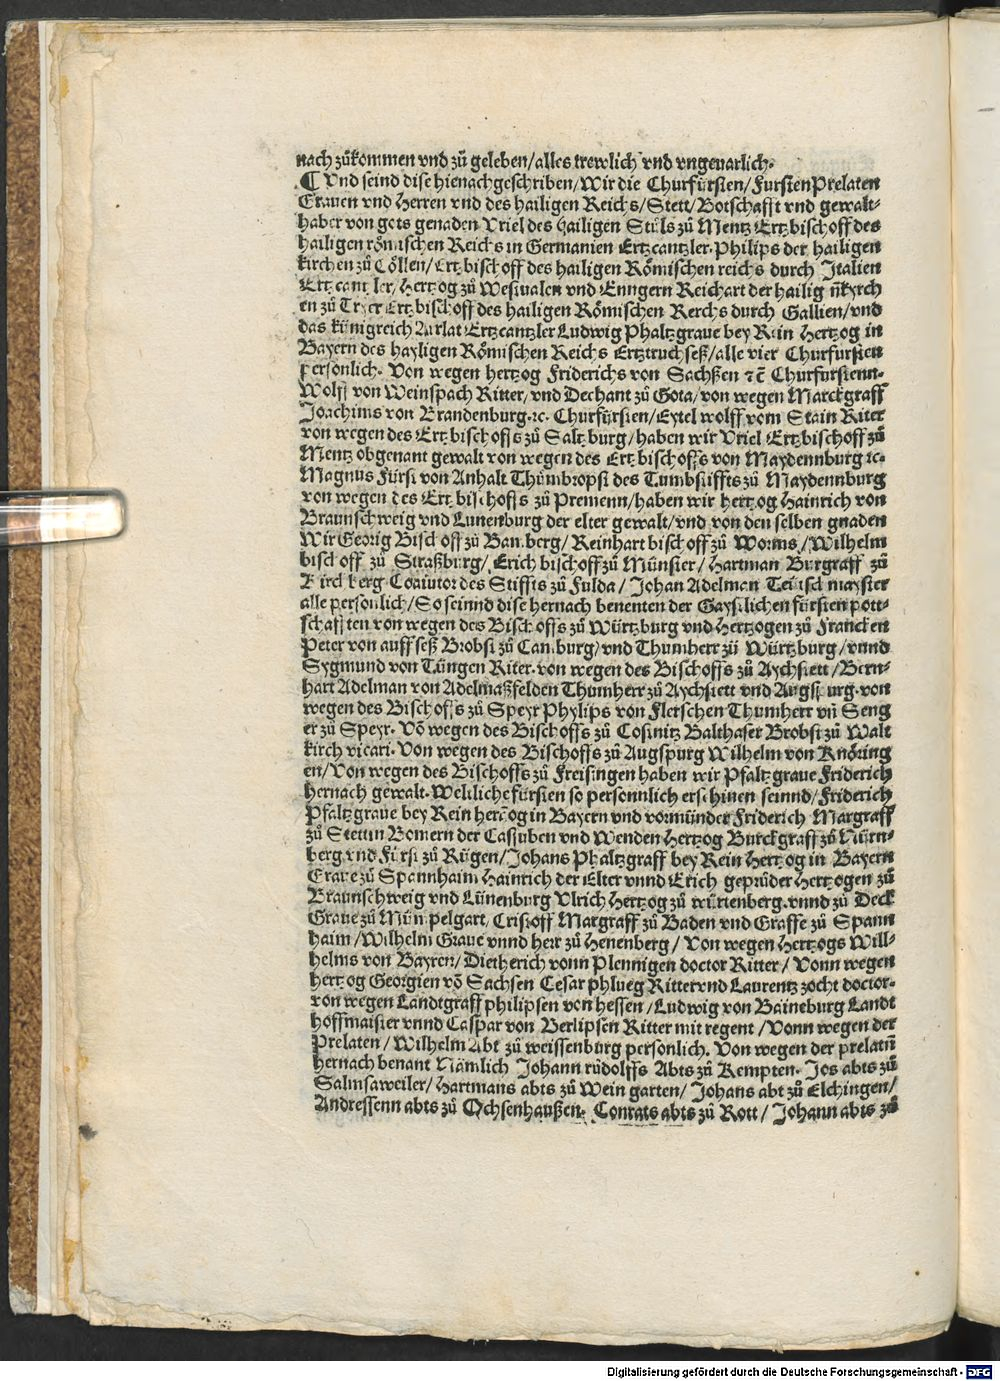 nach zůkommen vnd zů geleben/alles trewlich vnd vngeuarlich.
¶ Vnd seind dise hienachgeschriben/Wir die Churfürsten/FurstenPrelaten
Grauen vnd Herren vnd des hailigen Reichs/Stett/Botschafft vnd gewalt⸗
haber von gots genaden Vriel des hailigen Stůls zů Mentz Ertzbischoff des
hailigen römischen Reichs in Germanien Ertzcantzler. Philips der hailigen
kirchen zů Cöllen/Ertzbischoff des hailigen Römischen reichs durch Italien
Ertzcantzler/Hertzog zů Wesiualen vnd Enngern Reichart der hailig ñkyrch
en zů Tryer Ertzbischoff des hailigen Römischen Rerchs durch Gallien/vnd
das künigreich Aurlat Ertzcantzler Ludwig Phaltzgraue bey Rein Hertzog in
Bayern des hayligen Römischen Reichs Ertztruchseß/alle vier Churfursten
persönlich. Von wegen hertzog Friderichs von Sachßen ꝛc̄ Churfurstenn.
Wolff von Weinspach Ritter/vnd Dechant zů Gota/von wegen Marckgraff
Joachims von Brandenburg.ꝛc. Churfürsten/Eytel wolff vom Stain Riter
von wegen des Ertzbischoffs zů Saltzburg/haben wir Vriel Ertzbischoff zů
Mentz obgenant gewalt von wegen des Ertzbischoffs von Maydennburg ꝛc.
Magnus Fürst von Anhalt Thůmbropst des Tumbstiffts zů Maydennburg
von wegen des Ertzbischoffs zů Premenn/haben wir hertzog Hainrich von
Braunschweig vnd Lunenburg der elter gewalt/vnd von den selben gnaden
Wir Georig Bischoff zů Bamberg/Reinhart bischoff zů Worms/Wilhelm
bischoff zů Straßburg/Erich bischoff zů Münster/Hartman Burgraff zů
Kirchberg Coaiutor des Stiffts zů Fulda/Johan Adelman Teutsch mayster
alle personlich/So seinnd dise hernach benenten der Gaystlichen fürsten pott⸗
schafften von wegen des Bischoffs zů Würtzburg vnd Hertzogen zů Francken
Peter von auffseß Brobst zů Camburg/vnd Thumherr zů Würtzburg/vnnd
Sygmund von Tüngen Riter. von wegen des Bischoffs zů Aychstett/Bern⸗
hart Adelman von Adelmaßfelden Thumherr zů Aychstett vnd Augspurg. von
wegen des Bischoffs zů Speyr Phylips von Flerschen Thumherr vñ Seng
er zů Speyr. Vō wegen des Bischoffs zů Costnitz Balthaser Brobst zů Walt
kirch vicari. Von wegen des Bischoffs zů Augspurg Wilhelm von Knöring
en/Von wegen des Bischoffs zů Freisingen haben wir Pfaltzgraue Friderich
hernach gewalt. Weltliche fürsten so personnlich erschinen seinnd/Friderich
Pfaltzgraue bey Rein hertzog in Bayern vnd vormünder Friderich Margraff
zů Stettin Bomern der Cassuben vnd Wenden Hertzog Burckgraff zů Nürn⸗
berg.vnd Fürst zů Rügen/Johans Phaltzgraff bey Rein Hertzog in Bayern
Graue zů Spannhaim Hainrich der Elter vnnd Erich geprüder Hertzogen zů
Braunschweig vnd Lünenburg Vlrich Hertzog zů wůrtenberg.vnnd zů Deck
Graue zů Münpelgart/Cristoff Margraff zů Baden vnd Graffe zů Spann
haim/Wilhelm Graue vnnd herr zů Henenberg/Von wegen Hertzogs Will⸗
helms von Bayren/Dietherich vonn Plennigen doctor Ritter/Vonn wegen
hertzog Georgien vō Sachsen Cesar phlueg Rittervnd Laurentz zocht doctor.
von wegen Landtgraff philipsen von hessen/Ludwig von Baineburg Landt
hoffmaister vnnd Caspar von Berlipsen Ritter mit regent/Vonn wegen der
Prelaten/Wilhelm Abt zů weissenburg personlich. Von wegen der prelatñ
hernach benant Nämlich Johann růdolffs Abts zů Kempten. Jos abts zů
Salmsaweiler/Hartmans abts zů Wein garten/Johans abt zů Elchingen/
Andressenn abts zů Ochsenhaußen. Conrats abts zů Rott/Johann abts zů
Digitalisierung gefördert durch die Deutsche Forschungsgemeinschaft - DFG